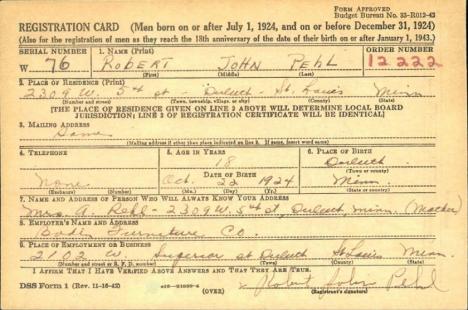 FORM APPROVED
Budget Bureau No. 33-R012-42
REGISTRATION CARD (Men born on or after July 1, 1924, and on or before December 31, 1924)
(Also for the registration of men as they reach the 18th anniversary of the date of their birth on or after January 1, 1943.)
SERIAL NUMBER 1. NAME (Print) ORDER NUMBER
W 76 ROBERT JOHN PEHL 12222
(First) (Middle) (Last)
2. PLACE OF RESIDENCE (Print)
2309 W. 5th st - Duluth - St. Louis Minn
(Number and street) (Town, township, village, or city) (County) (State)
[THE PLACE OF RESIDENCE GIVEN ON LINE 2 ABOVE WILL DETERMINE LOCAL BOARD
JURISDICTION; LINE 2 OF REGISTRATION CERTIFICATE WILL BE IDENTICAL]
3. MAILING ADDRESS
Same
(Mailing address if other than place indicated on line 2. If same, insert word same)
4. TELEPHONE 5. AGE IN YEARS 6. PLACE OF BIRTH
18 Duluth
DATE OF BIRTH (Town or county)
None Oct. 22 1924 Minn.
(Exchange) (Number) (Mo.) (Day) (Yr.) (State or country)
7. NAME AND ADDRESS OF PERSON WHO WILL ALWAYS KNOW YOUR ADDRESS
Mrs. Pehl - 2309 W. 5th st, Duluth, Minn (Mother)
8. EMPLOYER'S NAME AND ADDRESS
Furniture Co.
9. PLACE OF EMPLOYMENT OR BUSINESS
2102 W. Superior st Duluth St Louis Minn.
(Number and street or R. F. D. number) (Town) (County) (State)
I AFFIRM THAT I HAVE VERIFIED ABOVE ANSWERS AND THAT THEY ARE TRUE.
DSS Form 1 (Rev. 11-16-42) (OVER) x Robert John Pehl
(Registrant's signature)